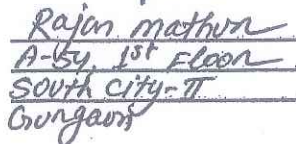 Rajan Mathur
A-54, 1st Floor
South City-II
Gurgaon